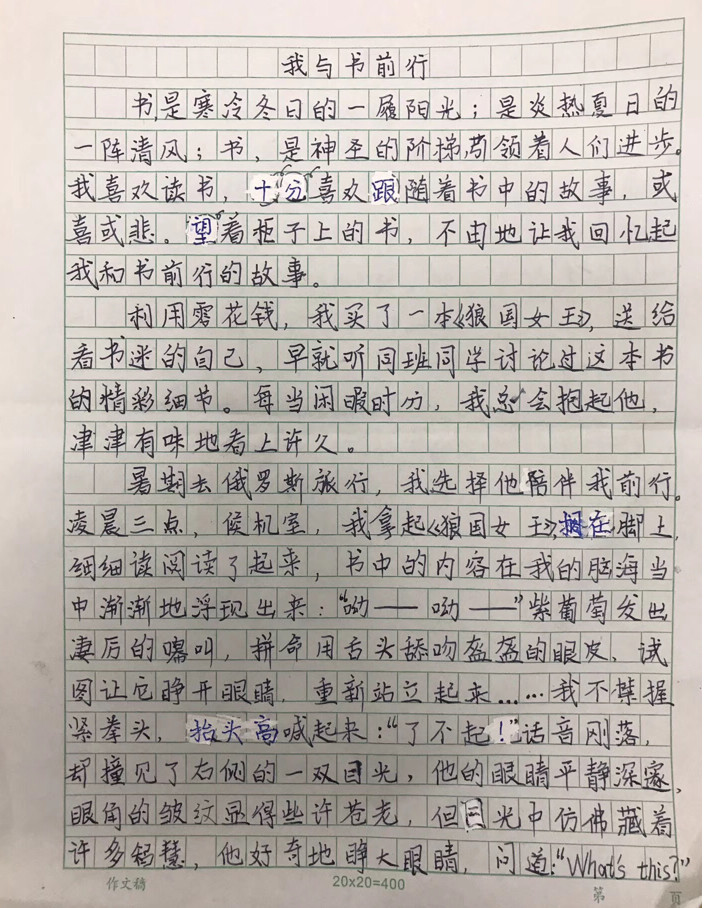 我与书前行
书，是寒冷冬日的一履阳光；是炎热夏日的
一阵清风；书，是神圣的阶梯，引领着人们进步。
我喜欢读书，十分喜欢跟随着书中的故事，或
喜或悲。望着柜子上的书，不由地让我回忆起
我和书前行的故事。
利用零花钱，我买了一本《狼国女王》，送给
看书迷的自己，早就听同班同学讨论过这本书
的精彩细节。每当闲暇时分，我总会抱起他，
津津有味地看上许久。
暑期去俄罗斯旅行，我选择他陪伴我前行。
凌晨三点，候机室，我拿起《狼国女王》，搁在脚上，
细细读阅读了起来，书中的内容在我的脑海当
中渐渐地浮现出来：“呦——呦——”紫葡萄发出
凄厉的嚎叫，拼命用舌头舔吻盔盔的眼皮、试
图让它睁开眼睛，重新站立起来……我不禁握
紧拳头，抬头高喊起来：“了不起！”话音刚落，
却撞见了右侧的一双目光，他的眼睛平静深邃，
眼角的皱纹显得些许苍老，但目光中仿佛藏着
许多智慧，他好奇地睁大眼睛，问道：“What's this?”
作文稿 20x20=400 第 页